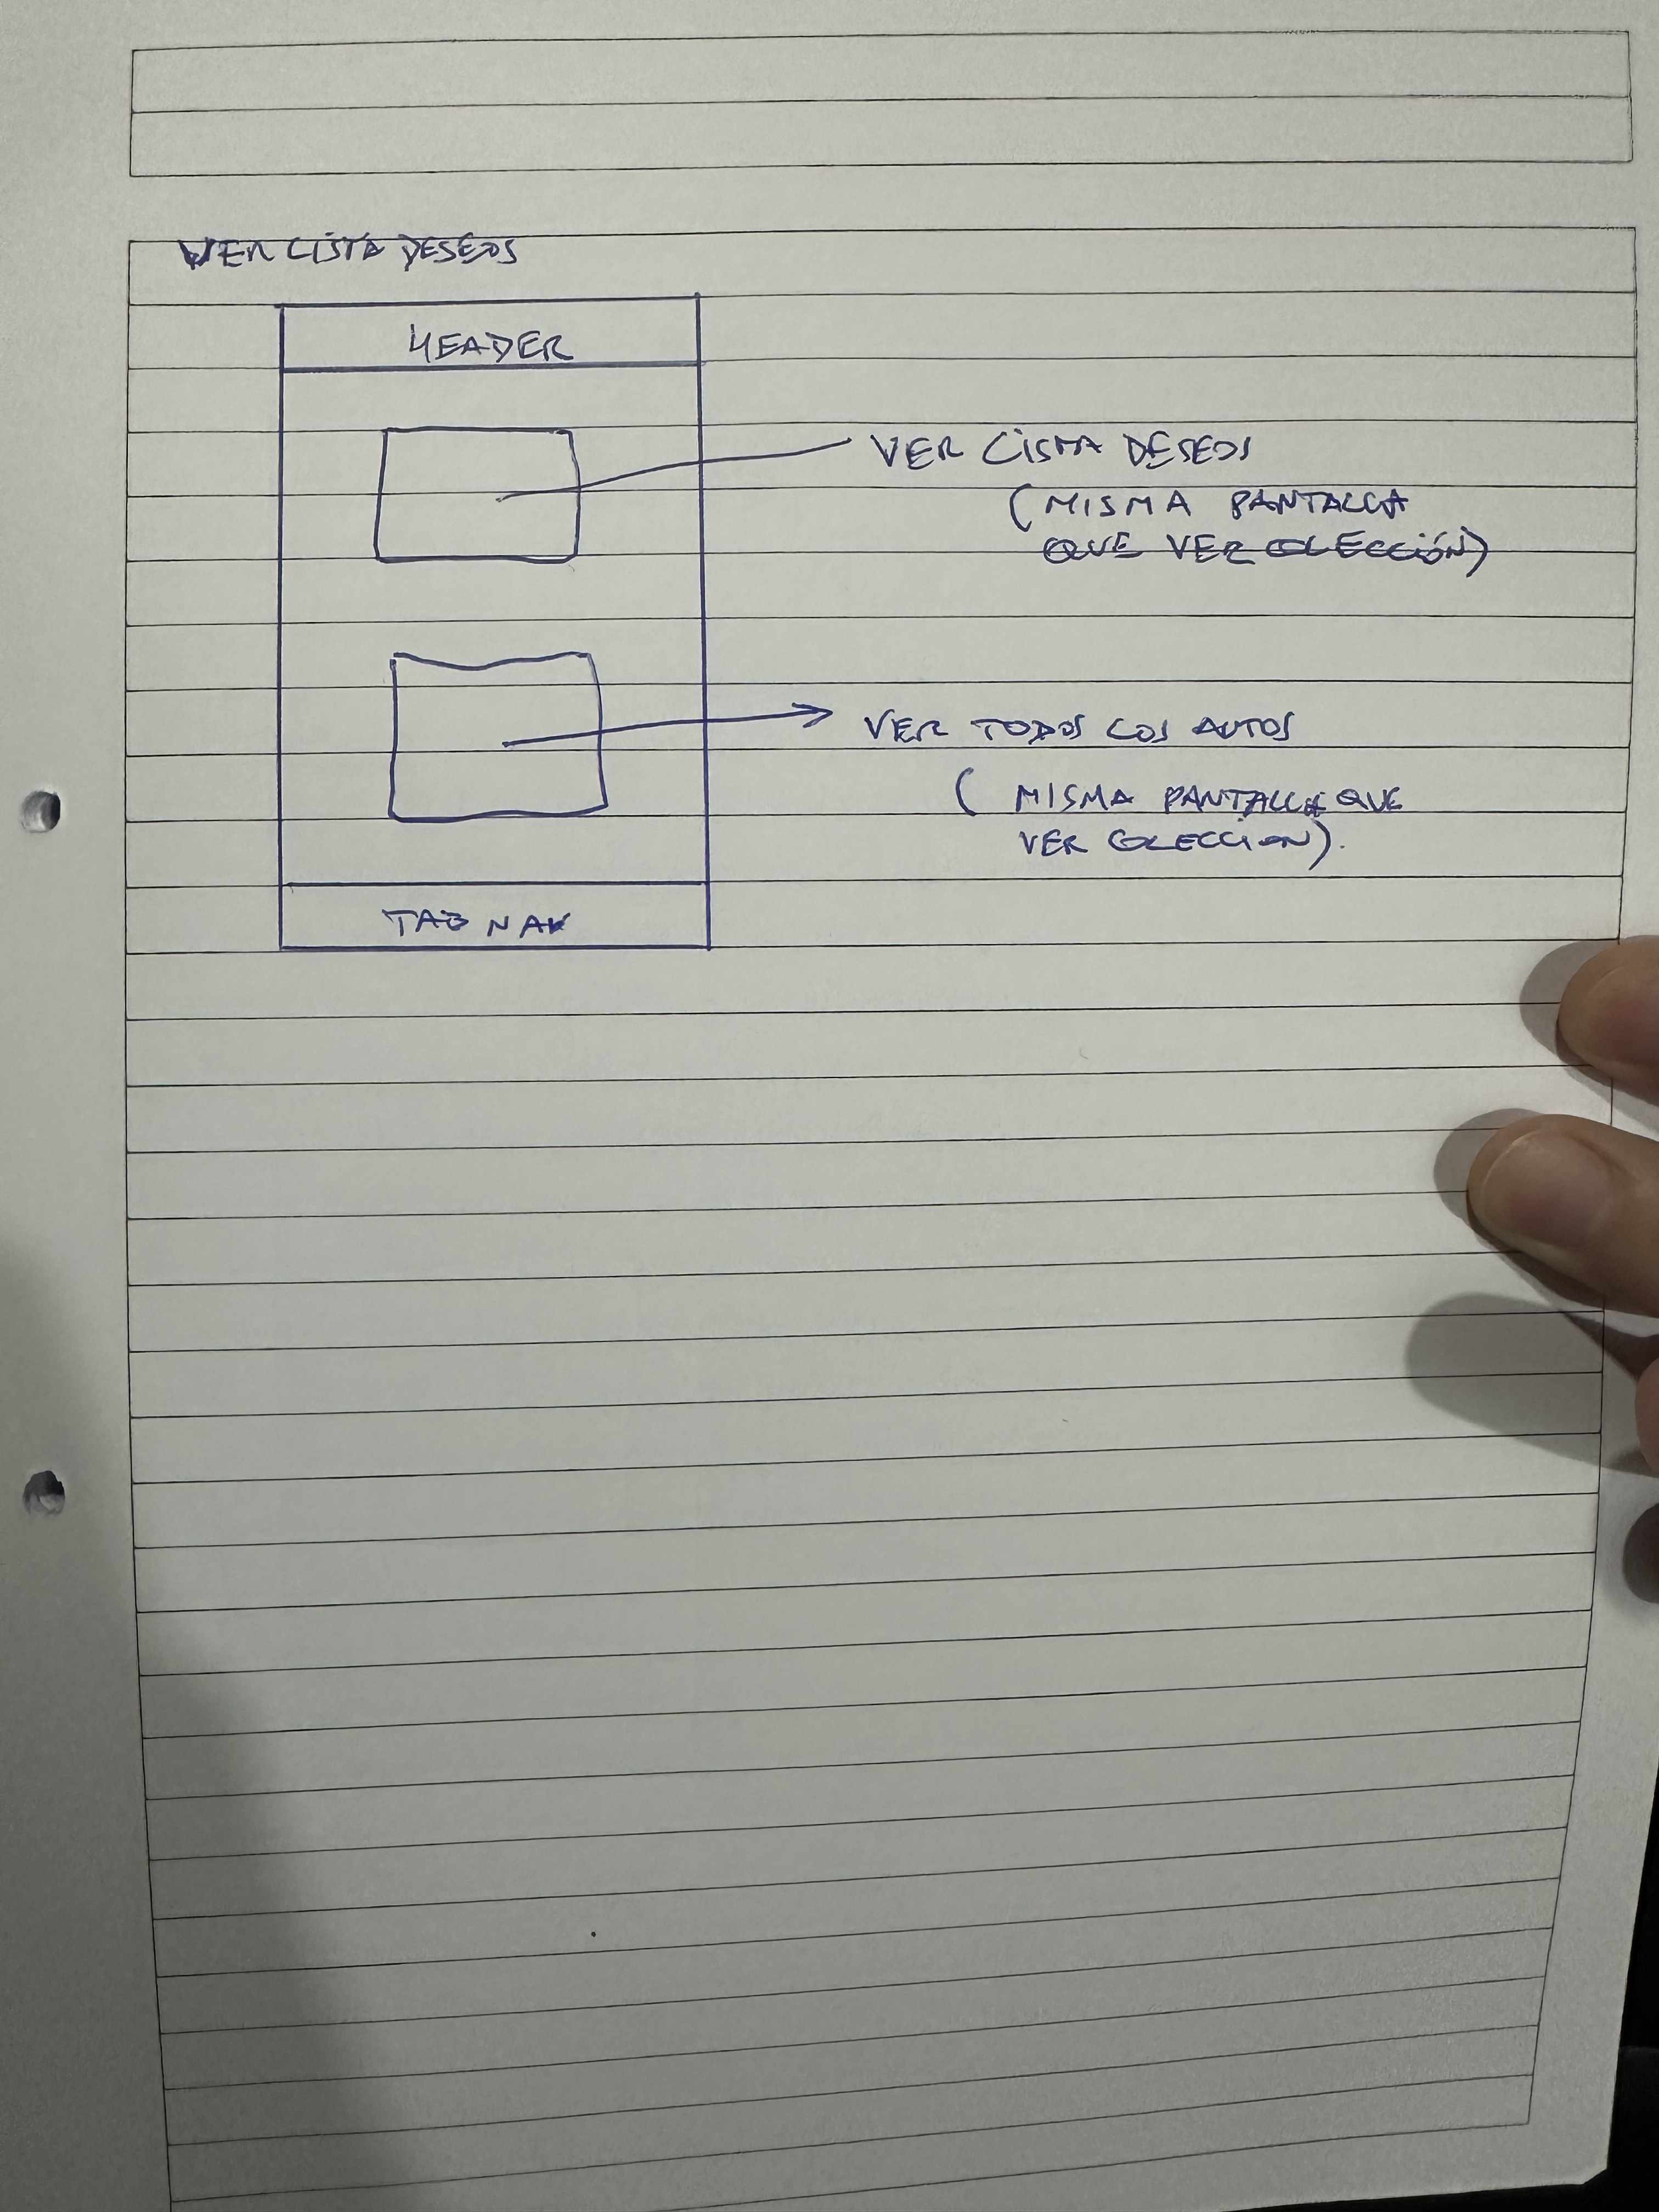 VER LISTA DESEOS
HEADER
VER LISTA DESEOS
(MISMA PANTALLA
QUE VER COLECCIÓN)
VER TODOS LOS AUTOS
(MISMA PANTALLA QUE
VER COLECCION).
TAB NAV